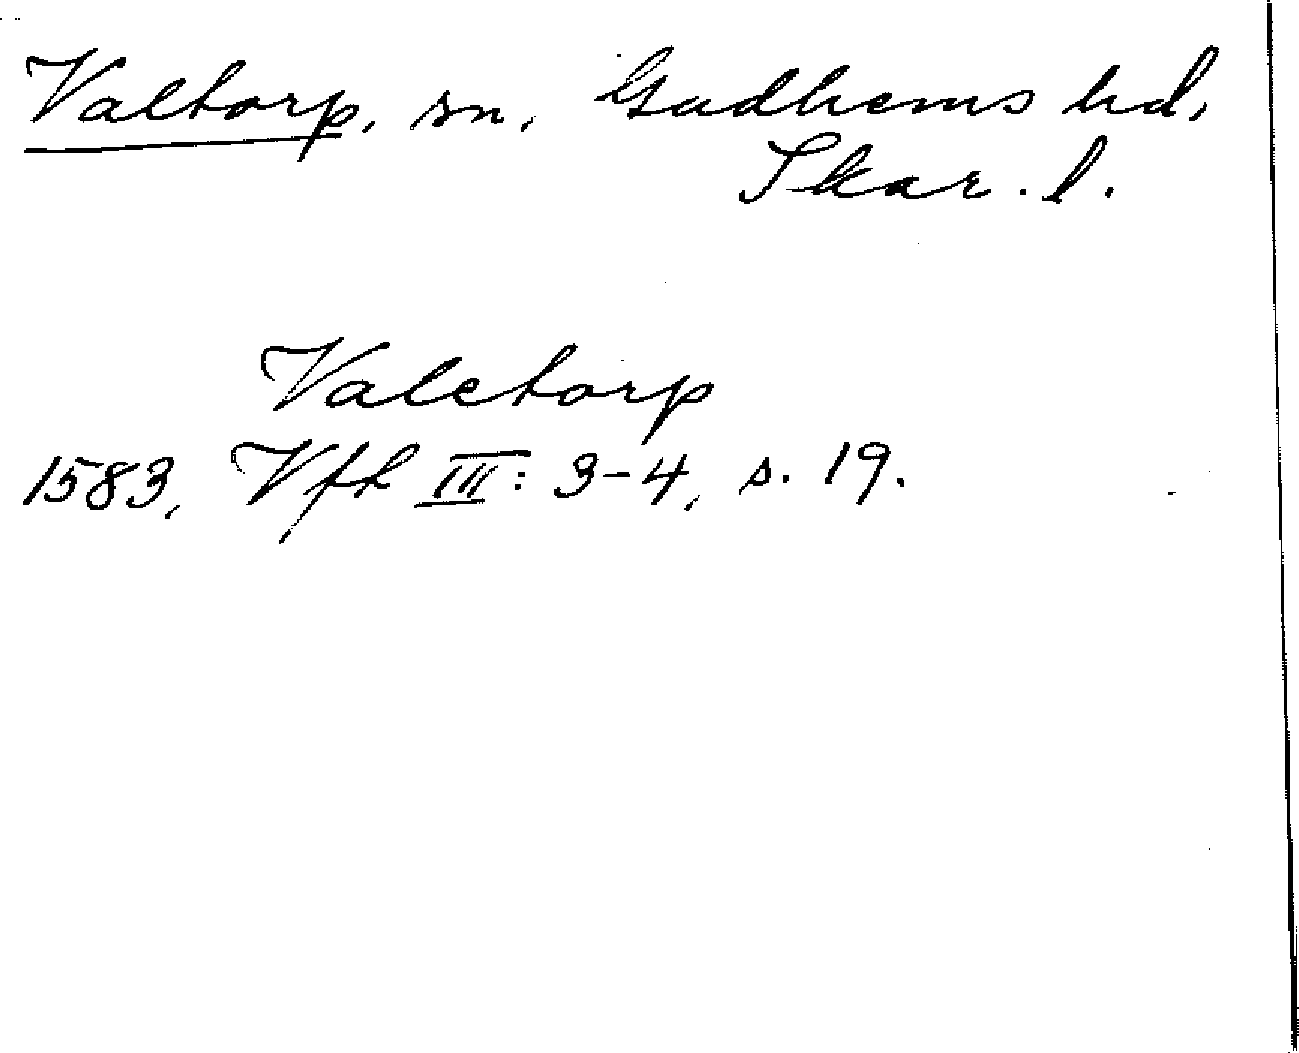 Valtorp, sn, Gudhems hd,
Skar. l.
Valetorp
1583, Vfh III: 3-4, s. 19.